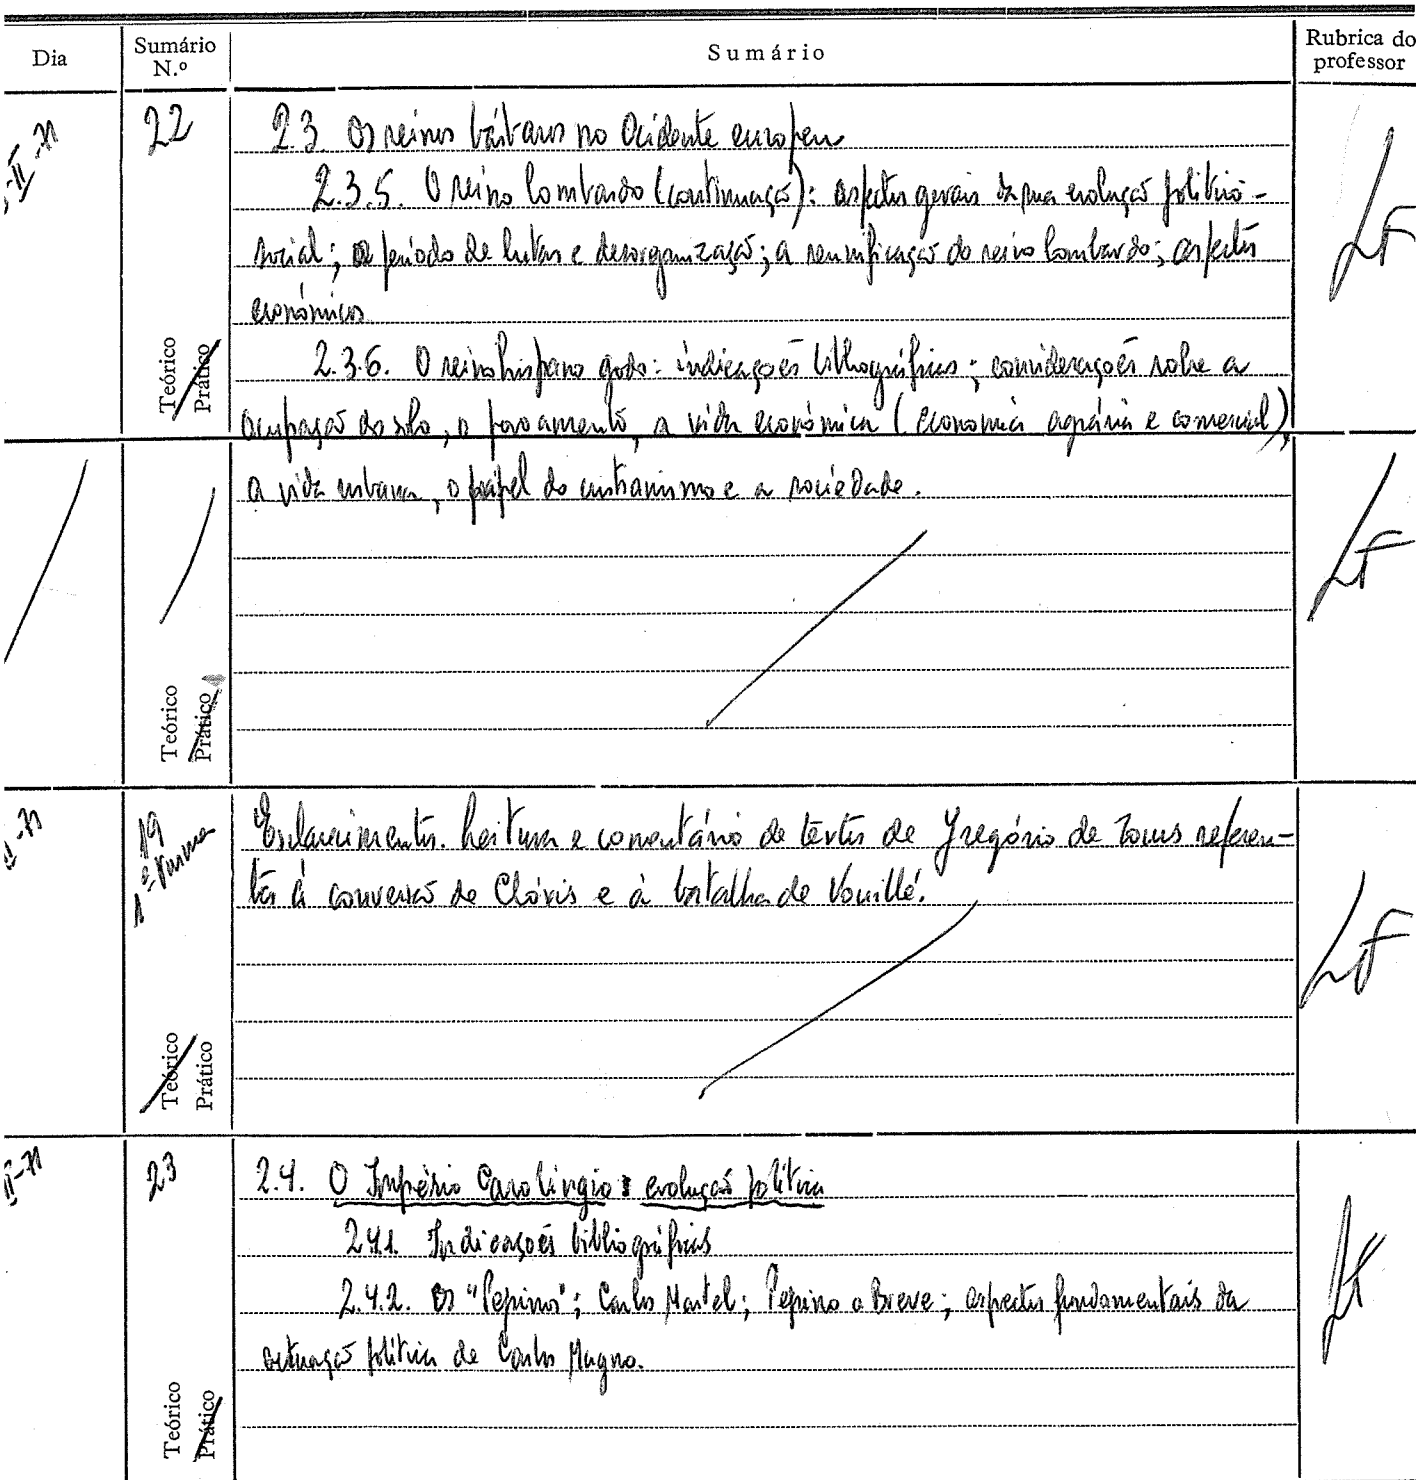 Dia
Sumário N.º
Sumário
Rubrica do professor
-II-71
22
2.3. Os reinos bárbaros no Ocidente europeu
2.3.5. O reino lombardo (continuação): aspectos gerais da sua evolução político-
social; o período de lutas e desorganização; a reunificação do reino lombardo; aspectos
económicos
2.3.6. O reino hispano godo: indicações bibliográficas; considerações sobre a
ocupação do solo, o povoamento, a vida económica (economia agrária e comercial),
Teórico
Prático
LF
a vida urbana, o papel do cristianismo e a sociedade.
Teórico
Prático
LF
II-71
19
1ª turma
Esclarecimentos. Leitura e comentário de textos de Gregório de Tours referen-
tes à conversão de Clóvis e à batalha de Vouillé.
Teórico
Prático
LF
II-71
23
2.4. O Império Carolíngio: evolução política
2.4.1. Indicações bibliográficas
2.4.2. Os "Pepinos"; Carlos Martel; Pepino o Breve; aspectos fundamentais da
actuação política de Carlos Magno.
Teórico
Prático